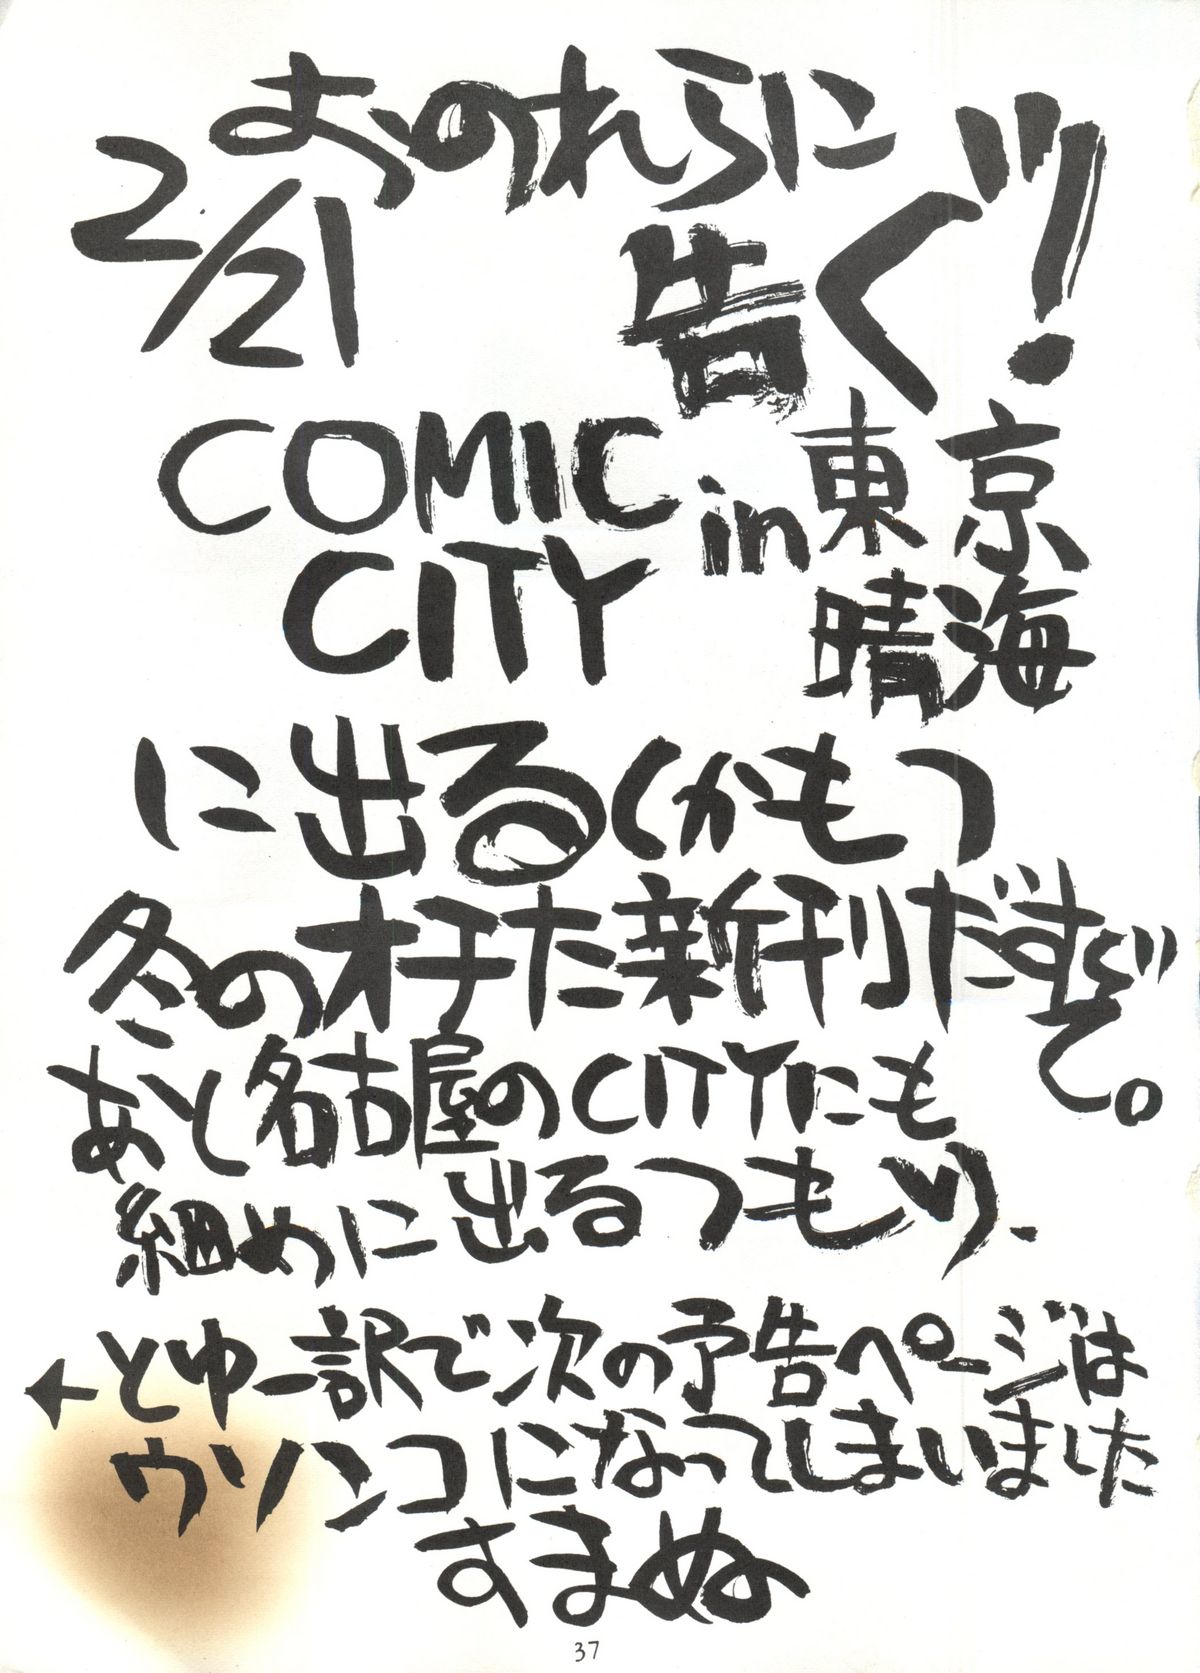 おのれらに
告ぐッ!
2/21
COMIC
CITY
in東京
晴海
に出る(かも)
冬のオチた新刊だすぞ。
あと名古屋のCITYにも
組めに出るつもり、
←とゆー訳で次の予告ページは
ウソンコになってしまいました
すまぬ
37